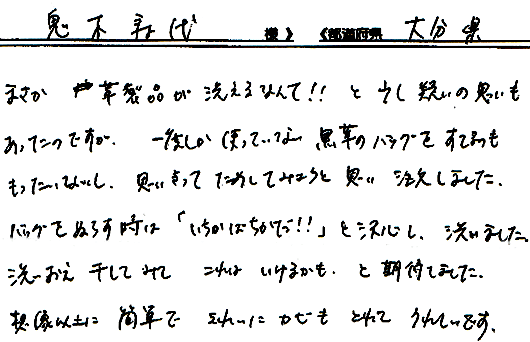 鬼木寿代 様》 《都道府県 大分県
まさか 革製品が 洗えるなんて!! と 少し 疑いの思いも
あったのですが、一度しか 使っていない 黒革のバッグを すてるのも
もったいないし、思いきって ためしてみようと 思い 注文しました。
バッグをぬらす時は「いちかばちかだ!!」と決心し、洗いました。
洗いおえ 干してみて これは いけるかも、と 期待しました。
想像以上に 簡単で きれいに カビも とれて うれしいです。